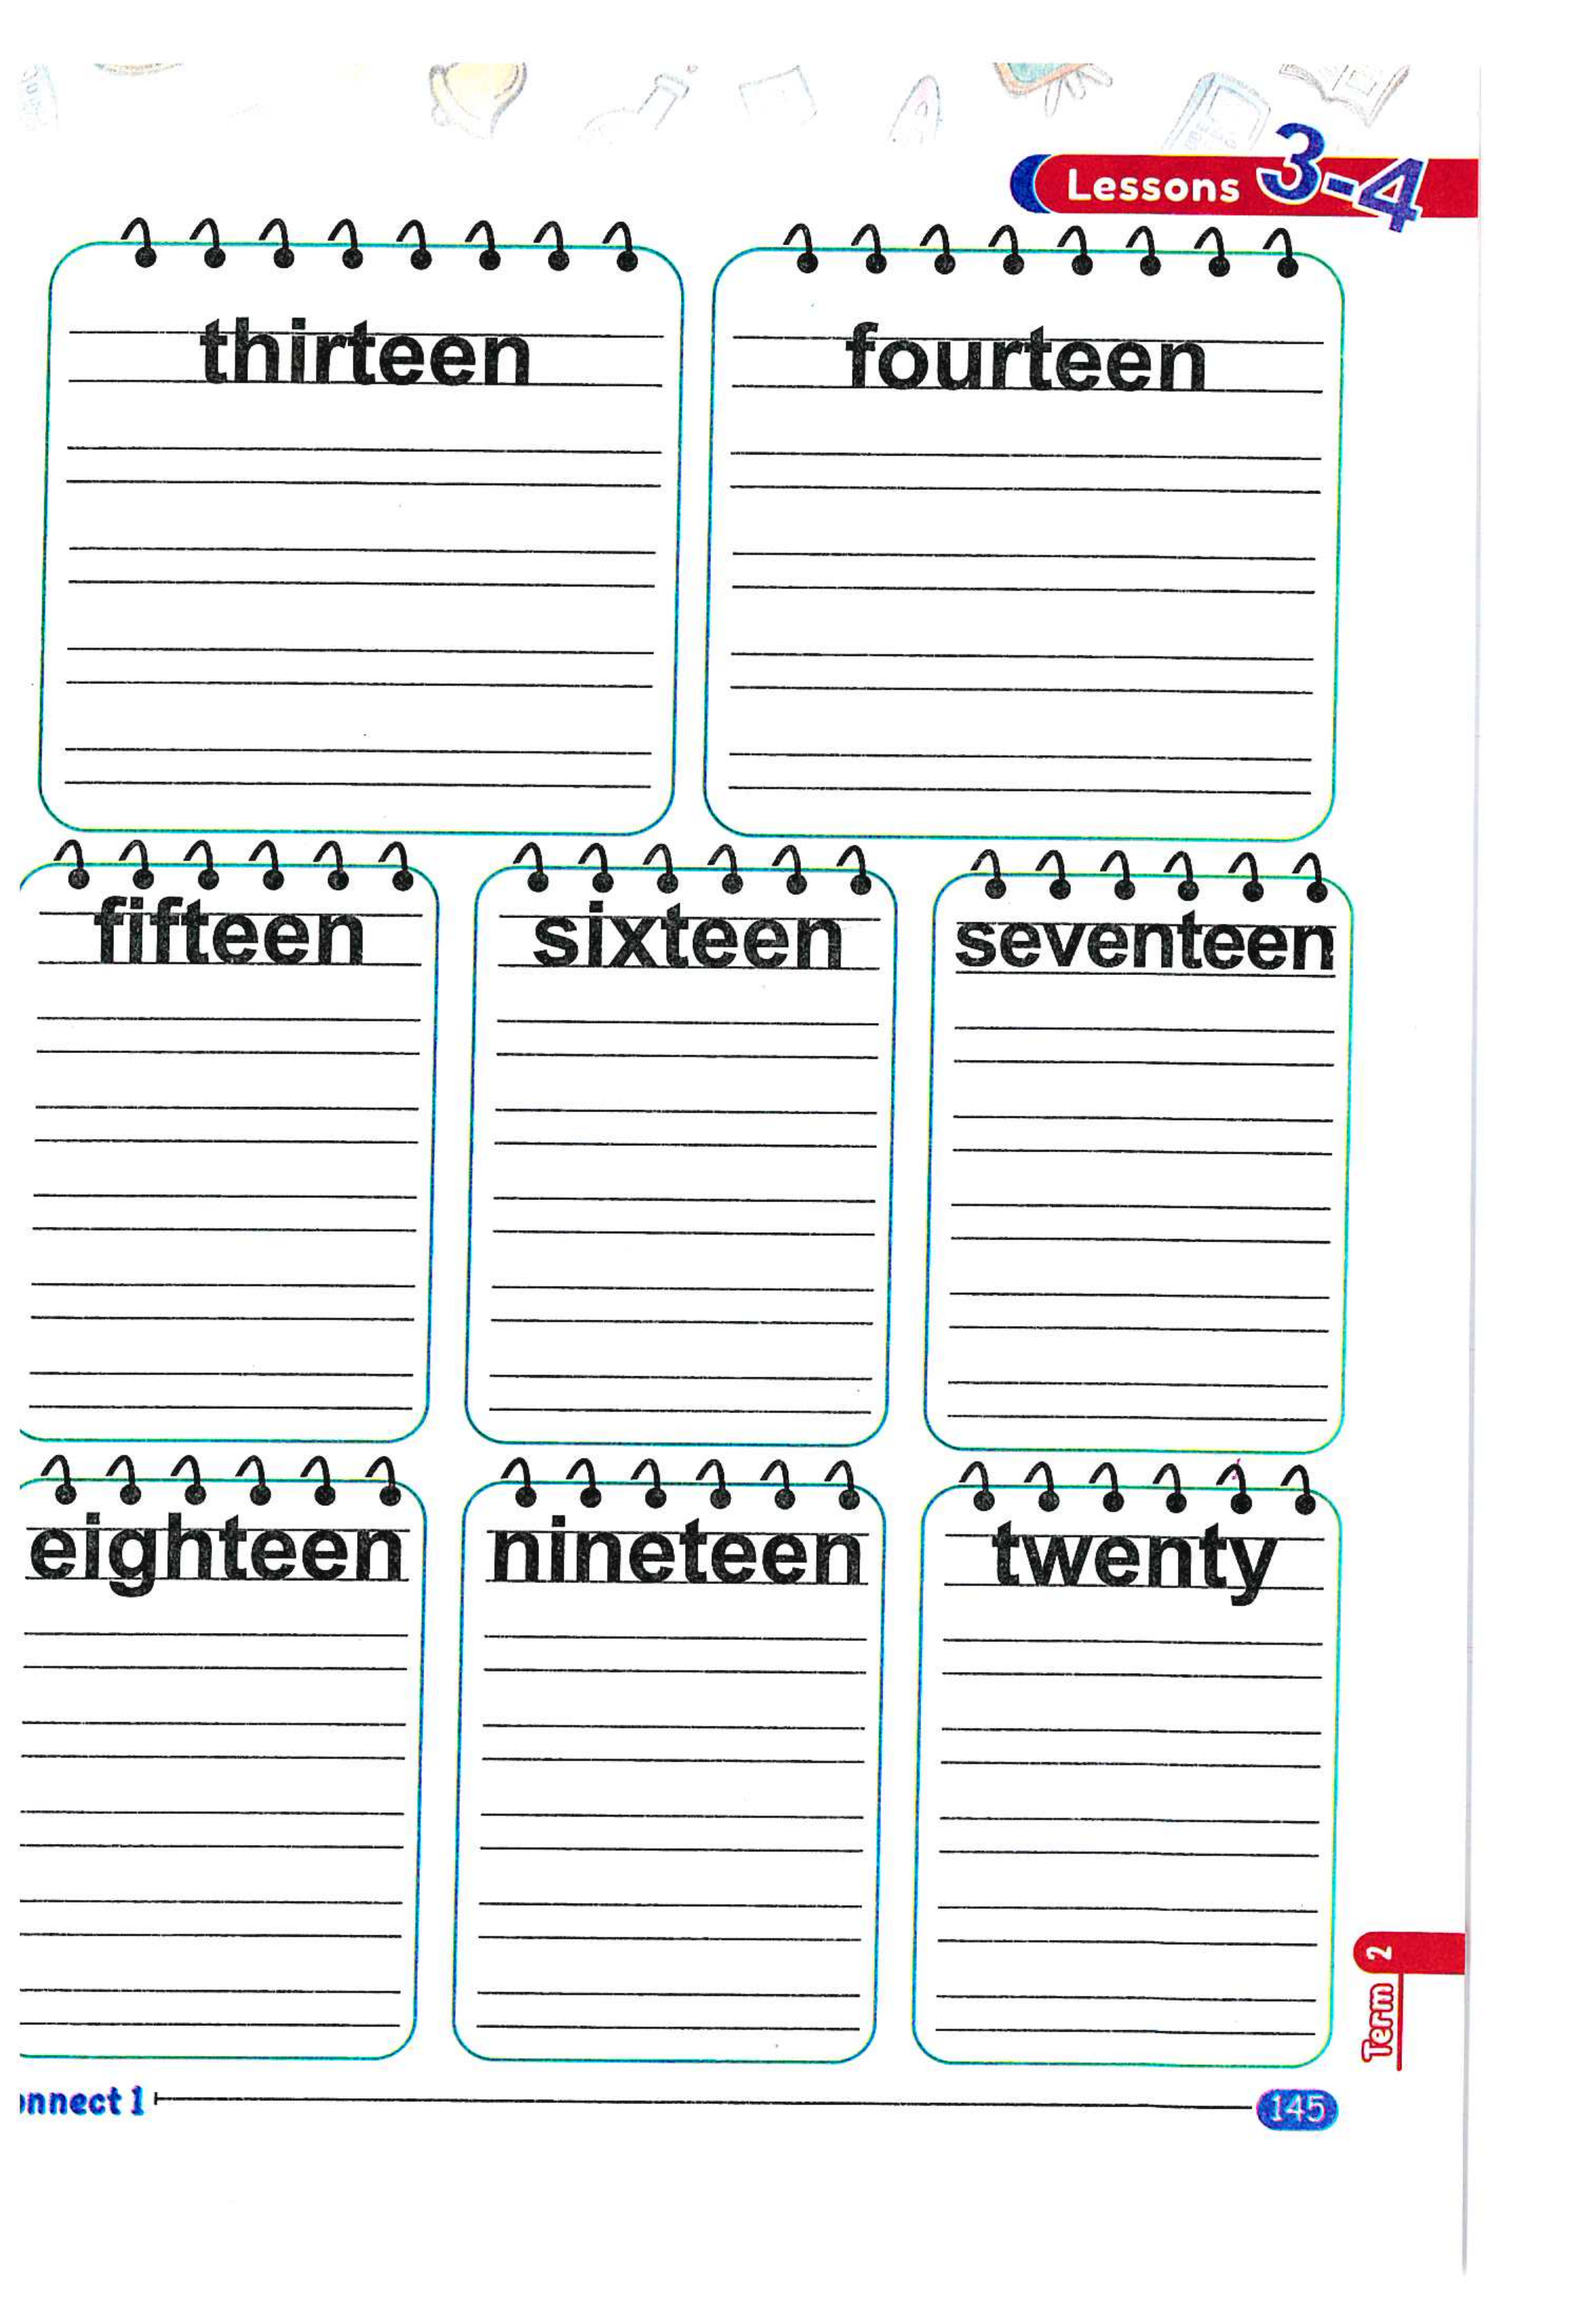 Lessons 3-4
thirteen
fourteen
fifteen
sixteen
seventeen
eighteen
nineteen
twenty
Term 2
onnect 1
145